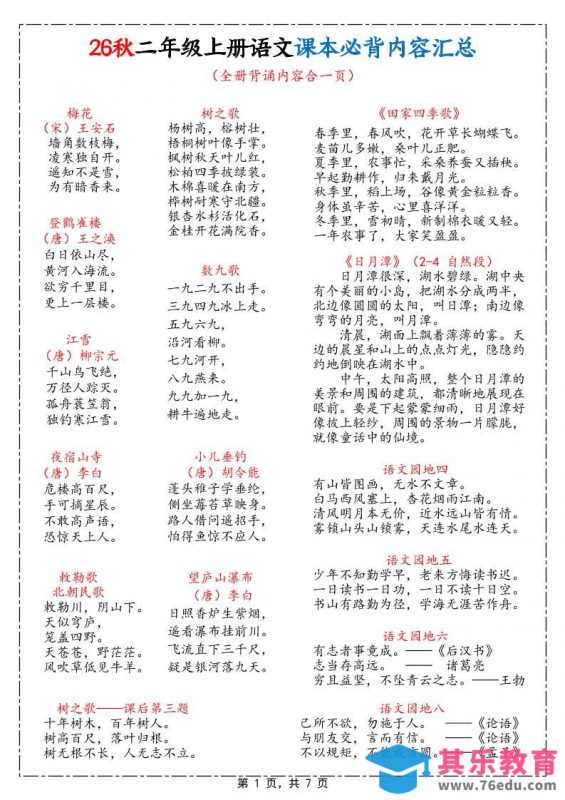 26秋二年级上册语文课本必背内容汇总
（全册背诵内容合一页）
梅花
（宋）王安石
墙角数枝梅，
凌寒独自开。
遥知不是雪，
为有暗香来。
登鹳雀楼
（唐）王之涣
白日依山尽，
黄河入海流。
欲穷千里目，
更上一层楼。
江雪
（唐）柳宗元
千山鸟飞绝，
万径人踪灭。
孤舟蓑笠翁，
独钓寒江雪。
夜宿山寺
（唐）李白
危楼高百尺，
手可摘星辰。
不敢高声语，
恐惊天上人。
敕勒歌
北朝民歌
敕勒川，阴山下。
天似穹庐，
笼盖四野。
天苍苍，野茫茫。
风吹草低见牛羊。
树之歌——课后第三题
十年树木，百年树人。
树高百尺，落叶归根。
树无根不长，人无志不立。
树之歌
杨树高，榕树壮，
梧桐树叶像手掌。
枫树秋天叶儿红，
松柏四季披绿装。
木棉喜暖在南方，
桦树耐寒守北疆。
银杏水杉活化石，
金桂开花满院香。
数九歌
一九二九不出手。
三九四九冰上走。
五九六九，
沿河看柳。
七九河开，
八九燕来。
九九加一九，
耕牛遍地走。
小儿垂钓
（唐）胡令能
蓬头稚子学垂纶，
侧坐莓苔草映身。
路人借问遥招手，
怕得鱼惊不应人。
望庐山瀑布
（唐）李白
日照香炉生紫烟，
遥看瀑布挂前川。
飞流直下三千尺，
疑是银河落九天。
《田家四季歌》
春季里，春风吹，花开草长蝴蝶飞。
麦苗儿多嫩，桑叶儿正肥。
夏季里，农事忙，采桑养蚕又插秧。
早起勤耕作，归来戴月光。
秋季里，稻上场，谷像黄金粒粒香。
身体虽辛苦，心里喜洋洋。
冬季里，雪初晴，新制棉衣暖又轻。
一年农事了，大家笑盈盈。
《日月潭》（2-4 自然段）
日月潭很深，湖水碧绿。湖中央
有个美丽的小岛，把湖水分成两半，
北边像圆圆的太阳，叫日潭；南边像
弯弯的月亮，叫月潭。
清晨，湖面上飘着薄薄的雾。天
边的晨星和山上的点点灯光，隐隐约
约地倒映在湖水中。
中午，太阳高照，整个日月潭的
美景和周围的建筑，都清晰地展现在
眼前。要是下起蒙蒙细雨，日月潭好
像披上轻纱，周围的景物一片朦胧，
就像童话中的仙境。
语文园地四
有山皆图画，无水不文章。
白马西风塞上，杏花烟雨江南。
清风明月本无价，近水远山皆有情。
雾锁山头山锁雾，天连水尾水连天。
语文园地五
少年不知勤学早，老来方悔读书迟。
一日读书一日功，一日不读十日空。
书山有路勤为径，学海无涯苦作舟。
语文园地六
有志者事竟成。——《后汉书》
志当存高远。 —— 诸葛亮
穷且益坚，不坠青云之志。——王勃
语文园地八
己所不欲，勿施于人。 ——《论语》
与朋友交，言而有信。 ——《论语》
不以规矩，不能成方圆。——《孟子》
第 1 页，共 7 页
其乐教育
www.76edu.com